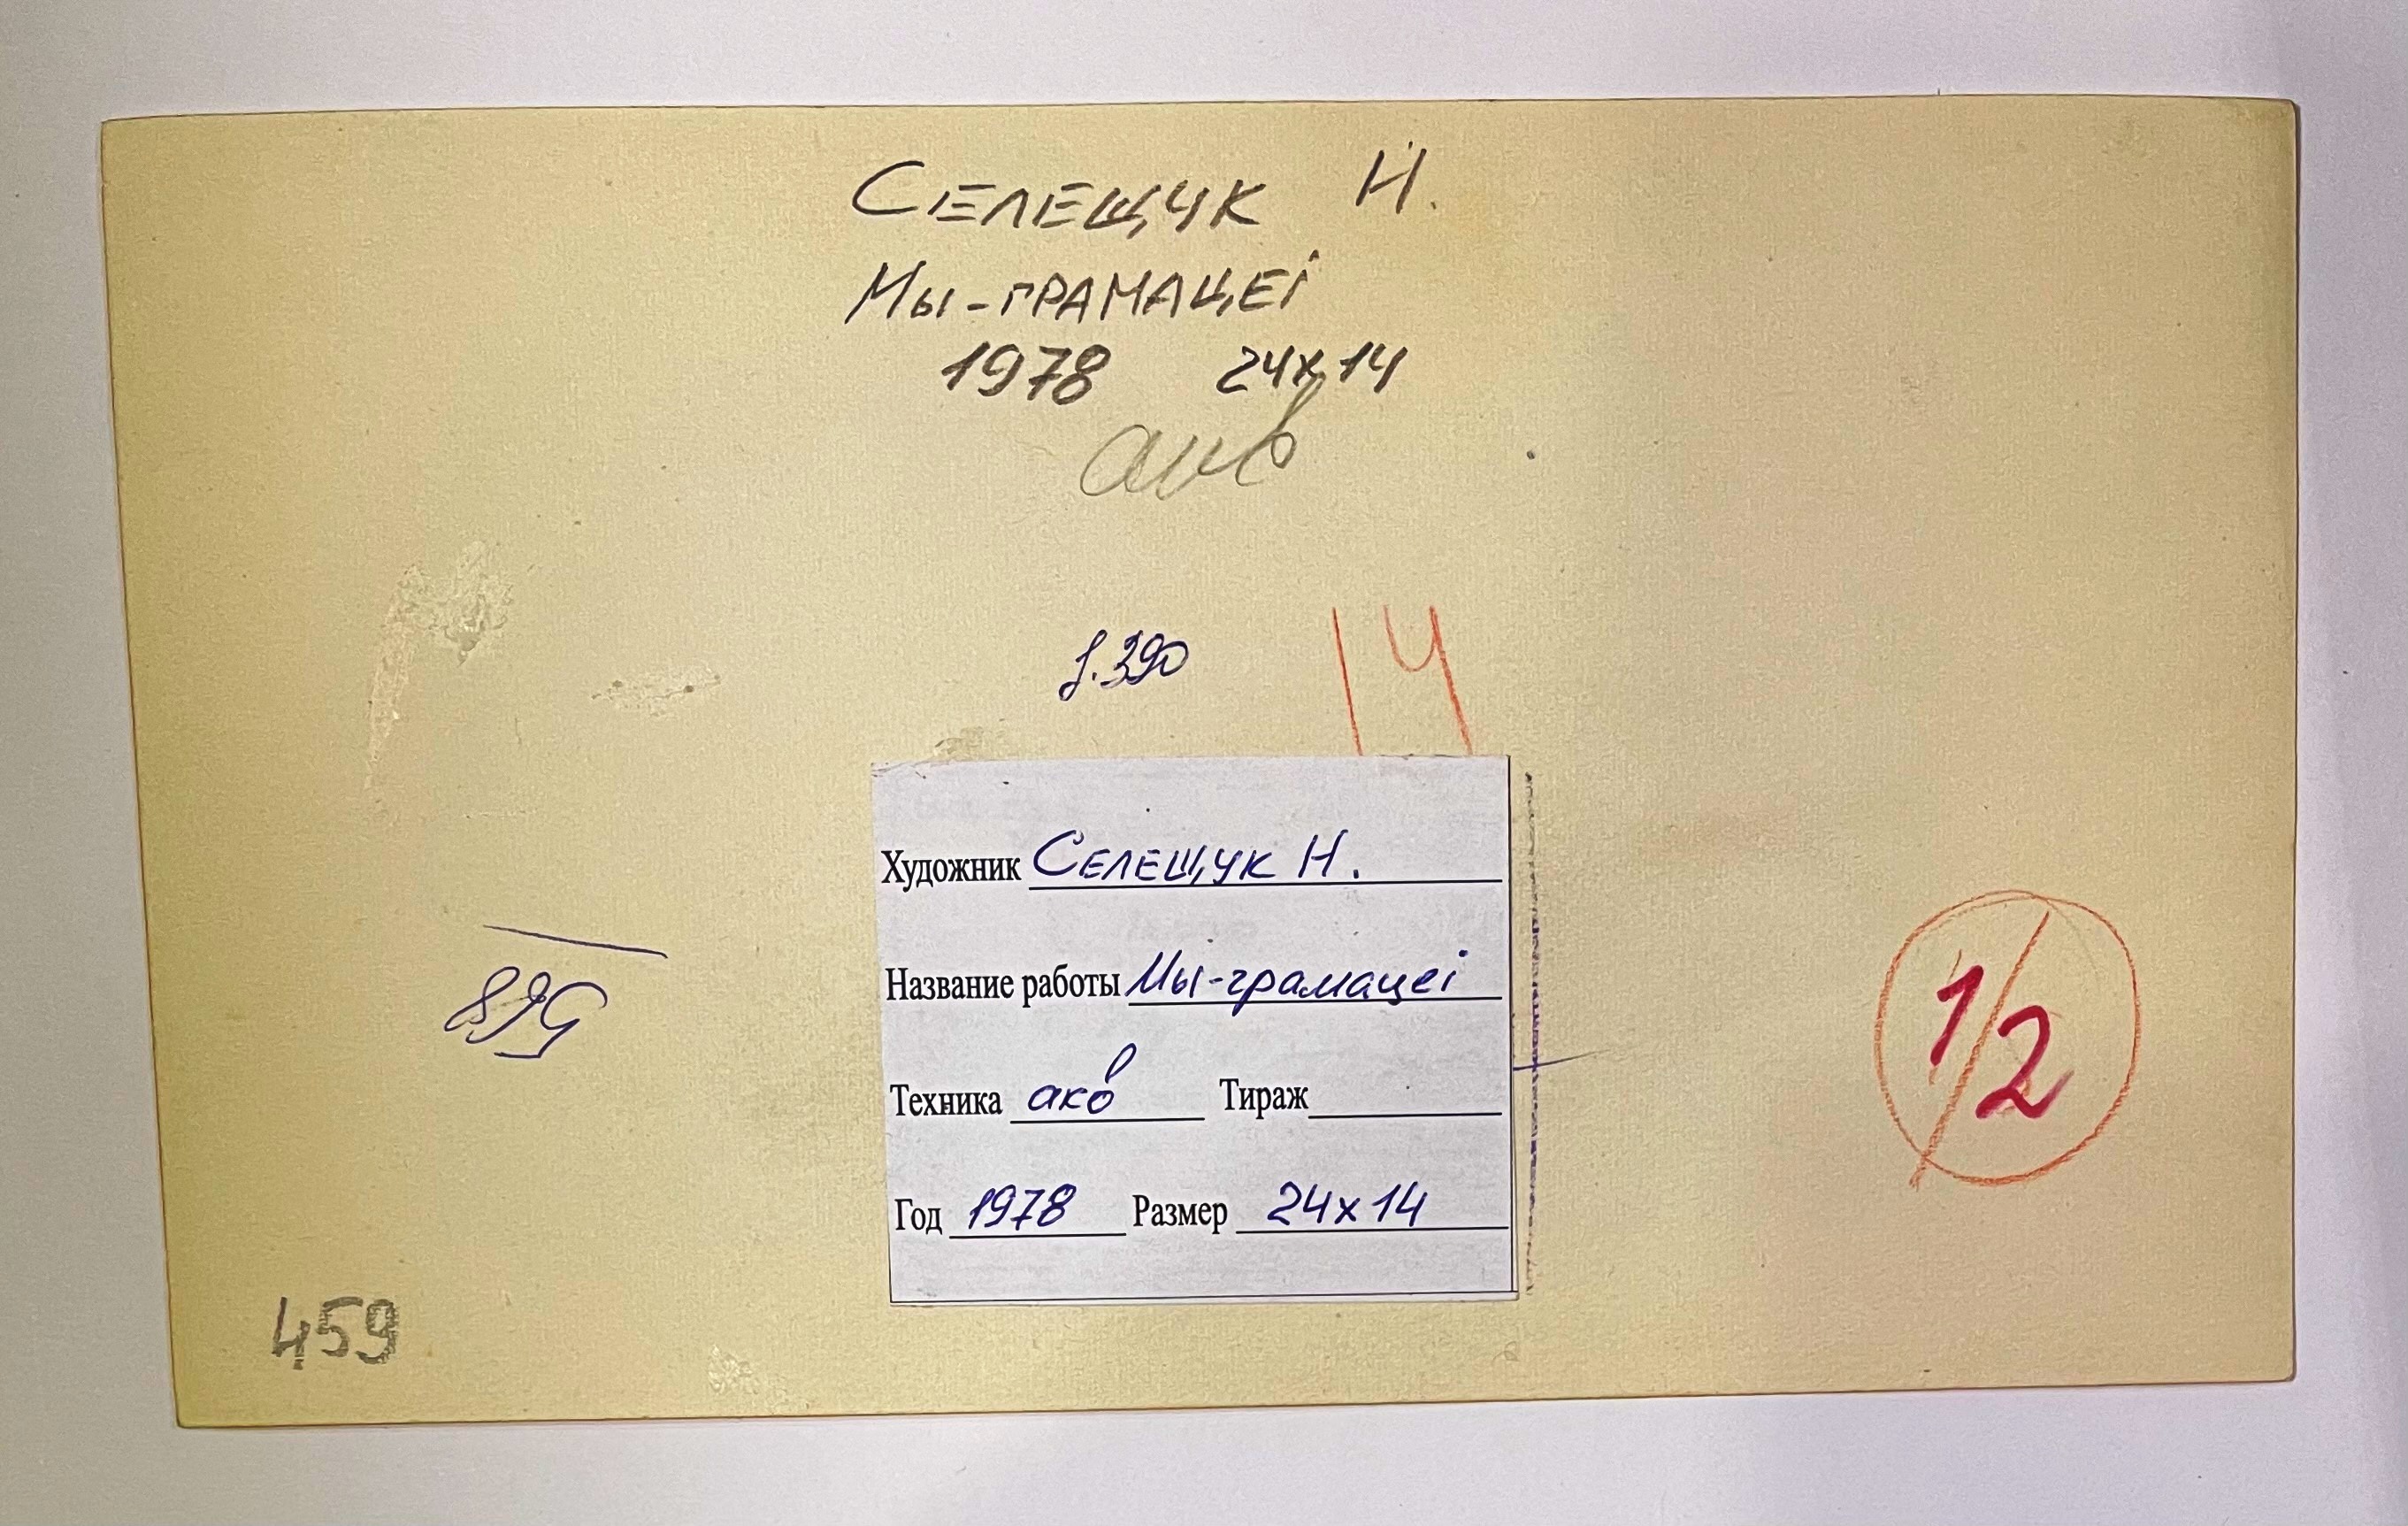 Селещук Н.
Мы-грамацеі
1978 24х14
акв
390
14
Художник Селещук Н.
Название работы Мы-грамацеі
Техника акв Тираж
Год 1978 Размер 24х14
568
1/2
459